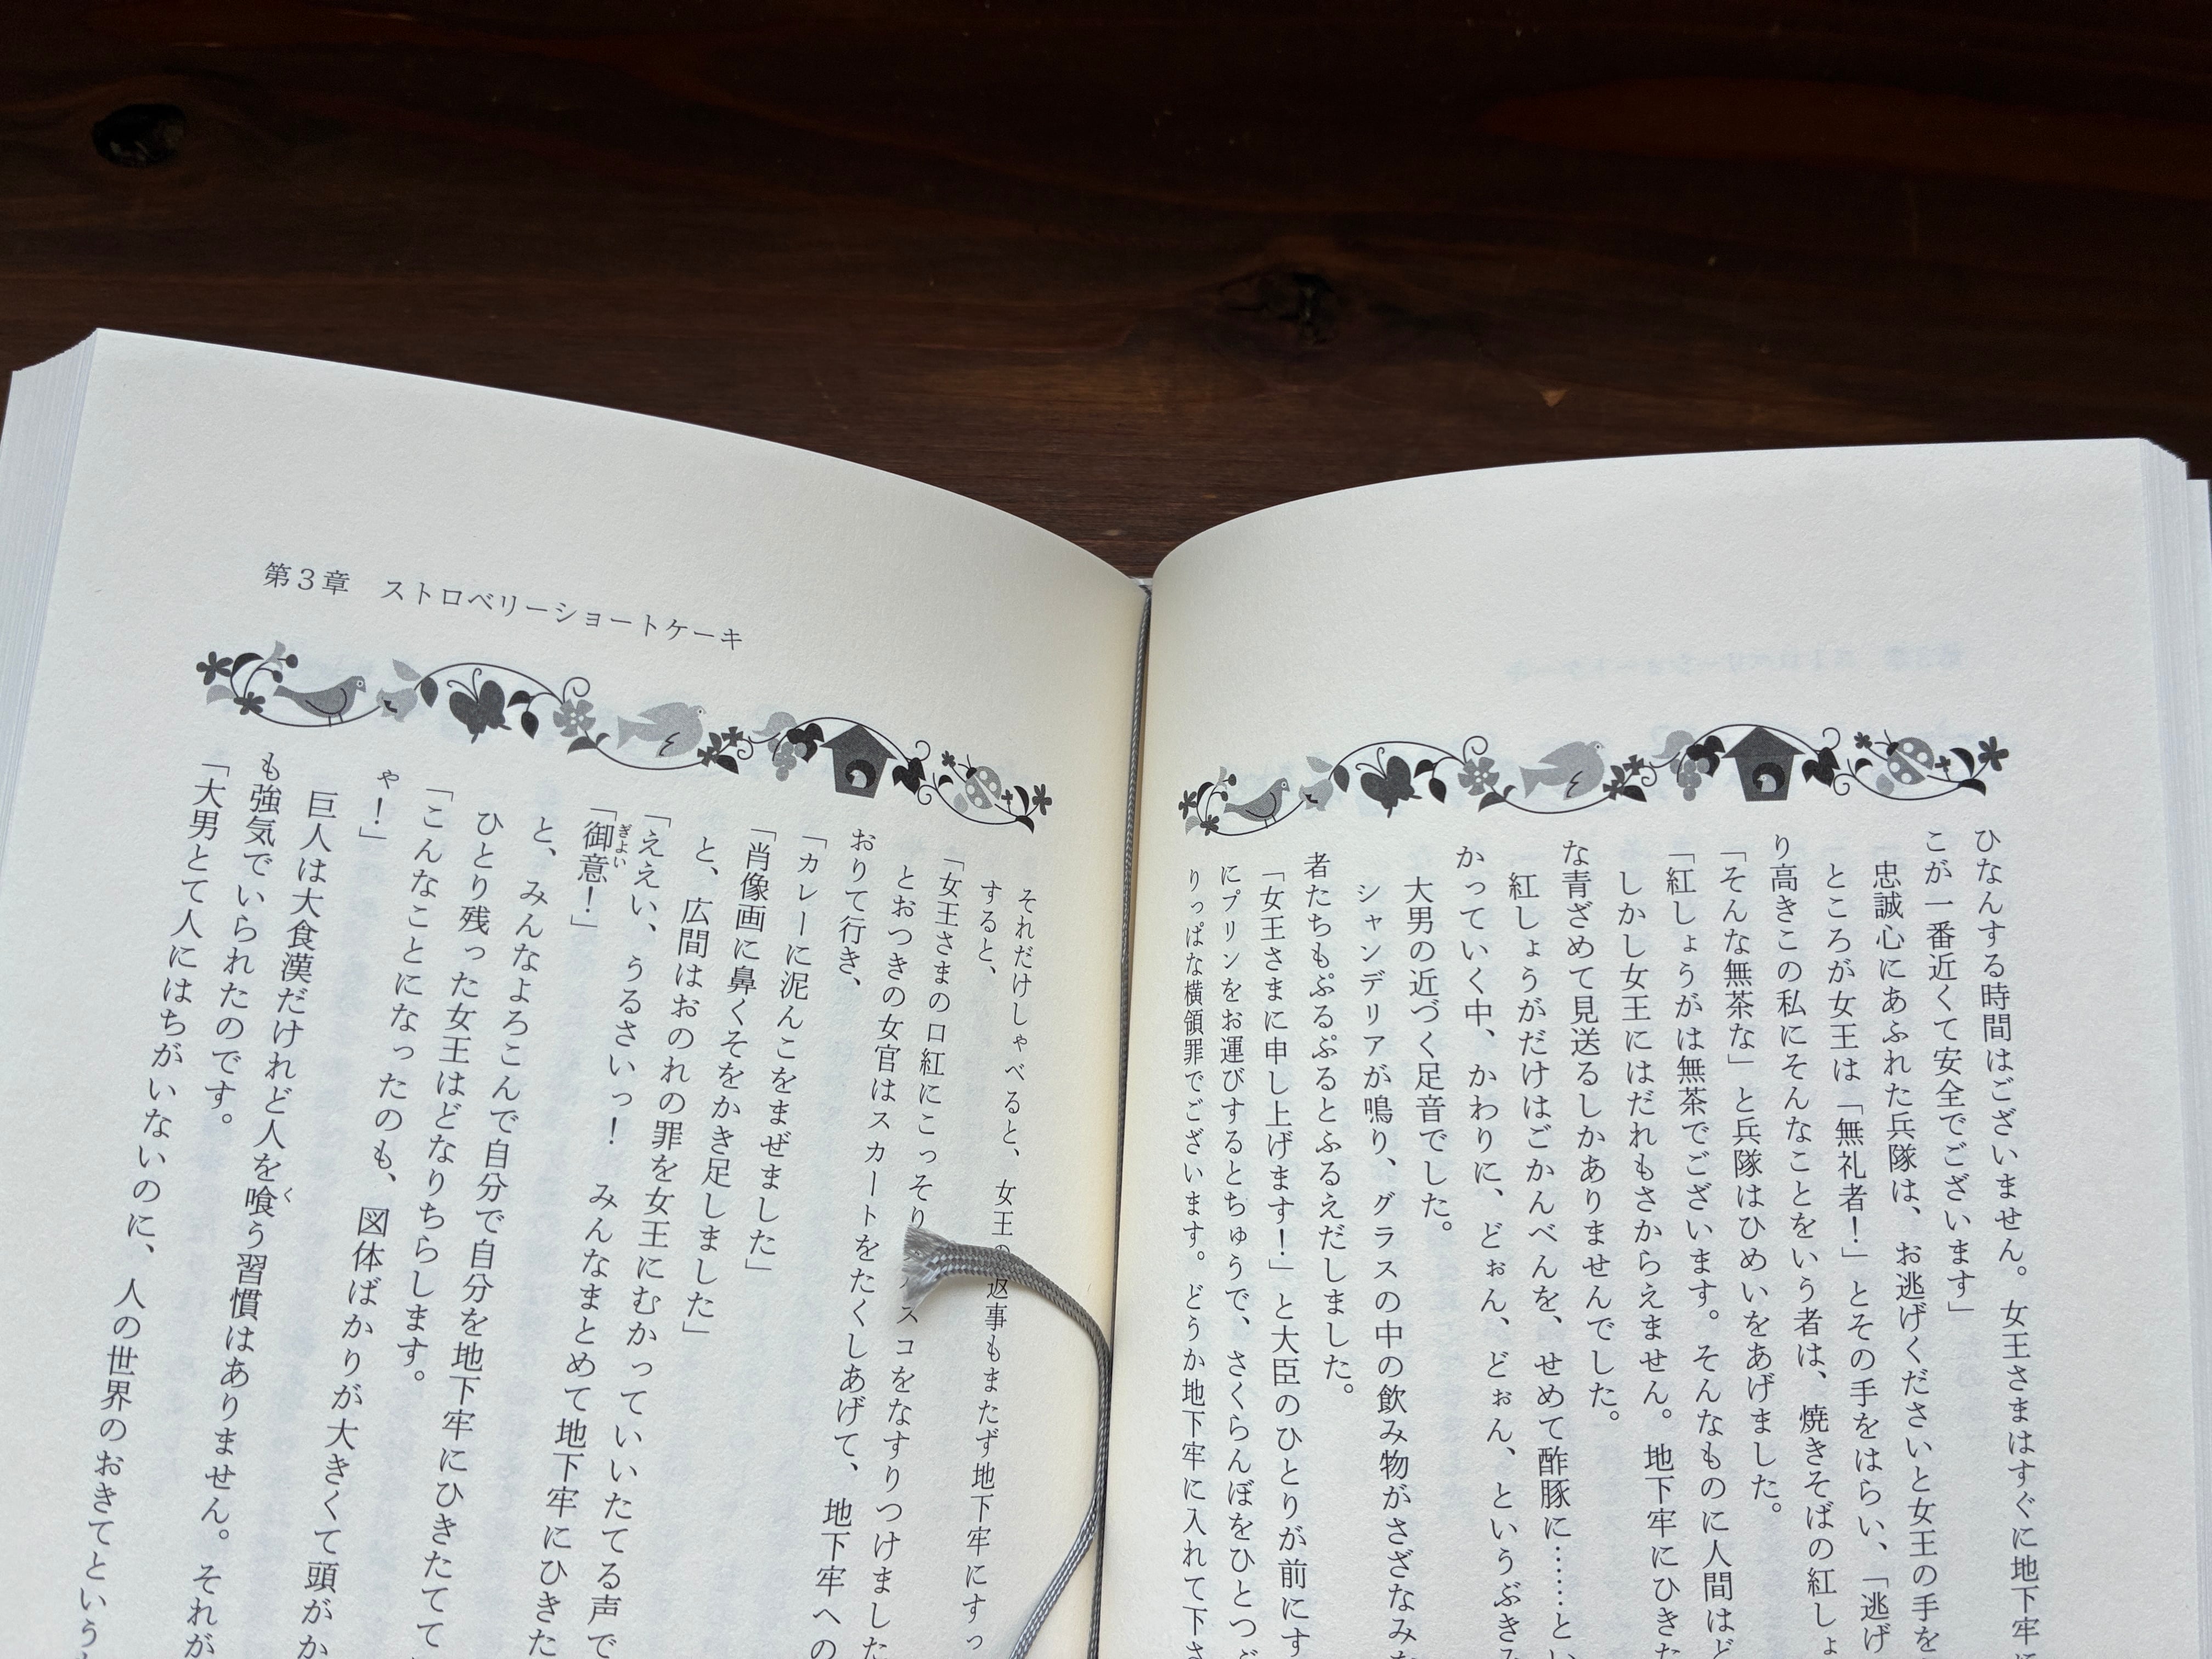 ひなんする時間はございません。女王さまはすぐに地下牢に
こが一番近くて安全でございます」
忠誠心にあふれた兵隊は、お逃げくださいと女王の手を
ところが女王は「無礼者！」とその手をはらい、「逃げ
り高きこの私にそんなことをいう者は、焼きそばの紅しょ
「そんな無茶な」と兵隊はひめいをあげました。
「紅しょうがは無茶でございます。そんなものに人間はど
しかし女王にはだれもさからえません。地下牢にひきた
な青ざめて見送るしかありませんでした。
「紅しょうがだけはごかんべんを、せめて酢豚に……とい
かっていく中、かわりに、どぉん、どぉん、というぶきみ
大男の近づく足音でした。
シャンデリアが鳴り、グラスの中の飲み物がさざなみ
者たちもぷるぷるとふるえだしました。
「女王さまに申し上げます！」と大臣のひとりが前にす
にプリンをお運びするとちゅうで、さくらんぼをひとつ
りっぱな横領罪でございます。どうか地下牢に入れて下さ
第3章 ストロベリーショートケーキ
それだけしゃべると、女王の返事もまたず地下牢にすっ
すると、
「女王さまの口紅にこっそり スコをなすりつけました
とおつきの女官はスカートをたくしあげて、地下牢への
おりて行き、
「カレーに泥んこをまぜました」
「肖像画に鼻くそをかき足しました」
と、広間はおのれの罪を女王にむかっていいたてる声で
「ええい、うるさいっ！ みんなまとめて地下牢にひきた
「御意！」
と、みんなよろこんで自分で自分を地下牢にひきたてて
ひとり残った女王はどなりちらします。
「こんなことになったのも、図体ばかりが大きくて頭がか
ゃ！」
巨人は大食漢だけれど人を喰う習慣はありません。それが
も強気でいられたのです。
「大男とて人にはちがいないのに、人の世界のおきてという